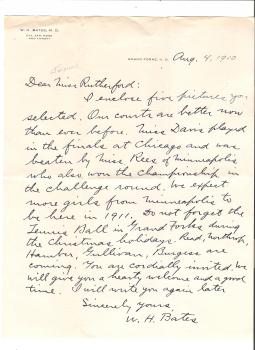 W. H. BATES, M. D.
GRAND FORKS, N. D. Aug. 4, 1910
Dear Miss Rutherford:
I enclose five pictures you
selected. Our courts are better now
than ever before. Miss Davis played
in the finals at Chicago and was
beaten by Miss Rees of Minneapolis
who also won the Championship in
the challenge round. We expect
more girls from Minneapolis to
be here in 1911. Do not forget the
Tennis Ball in Grand Forks during
the Christmas holidays. Read, Northrop,
Hamber, Gullivan, Burgess are
coming. You are cordially invited. We
will give you a hearty welcome and a good
time. I will write you again later
Sincerely yours,
W. H. Bates